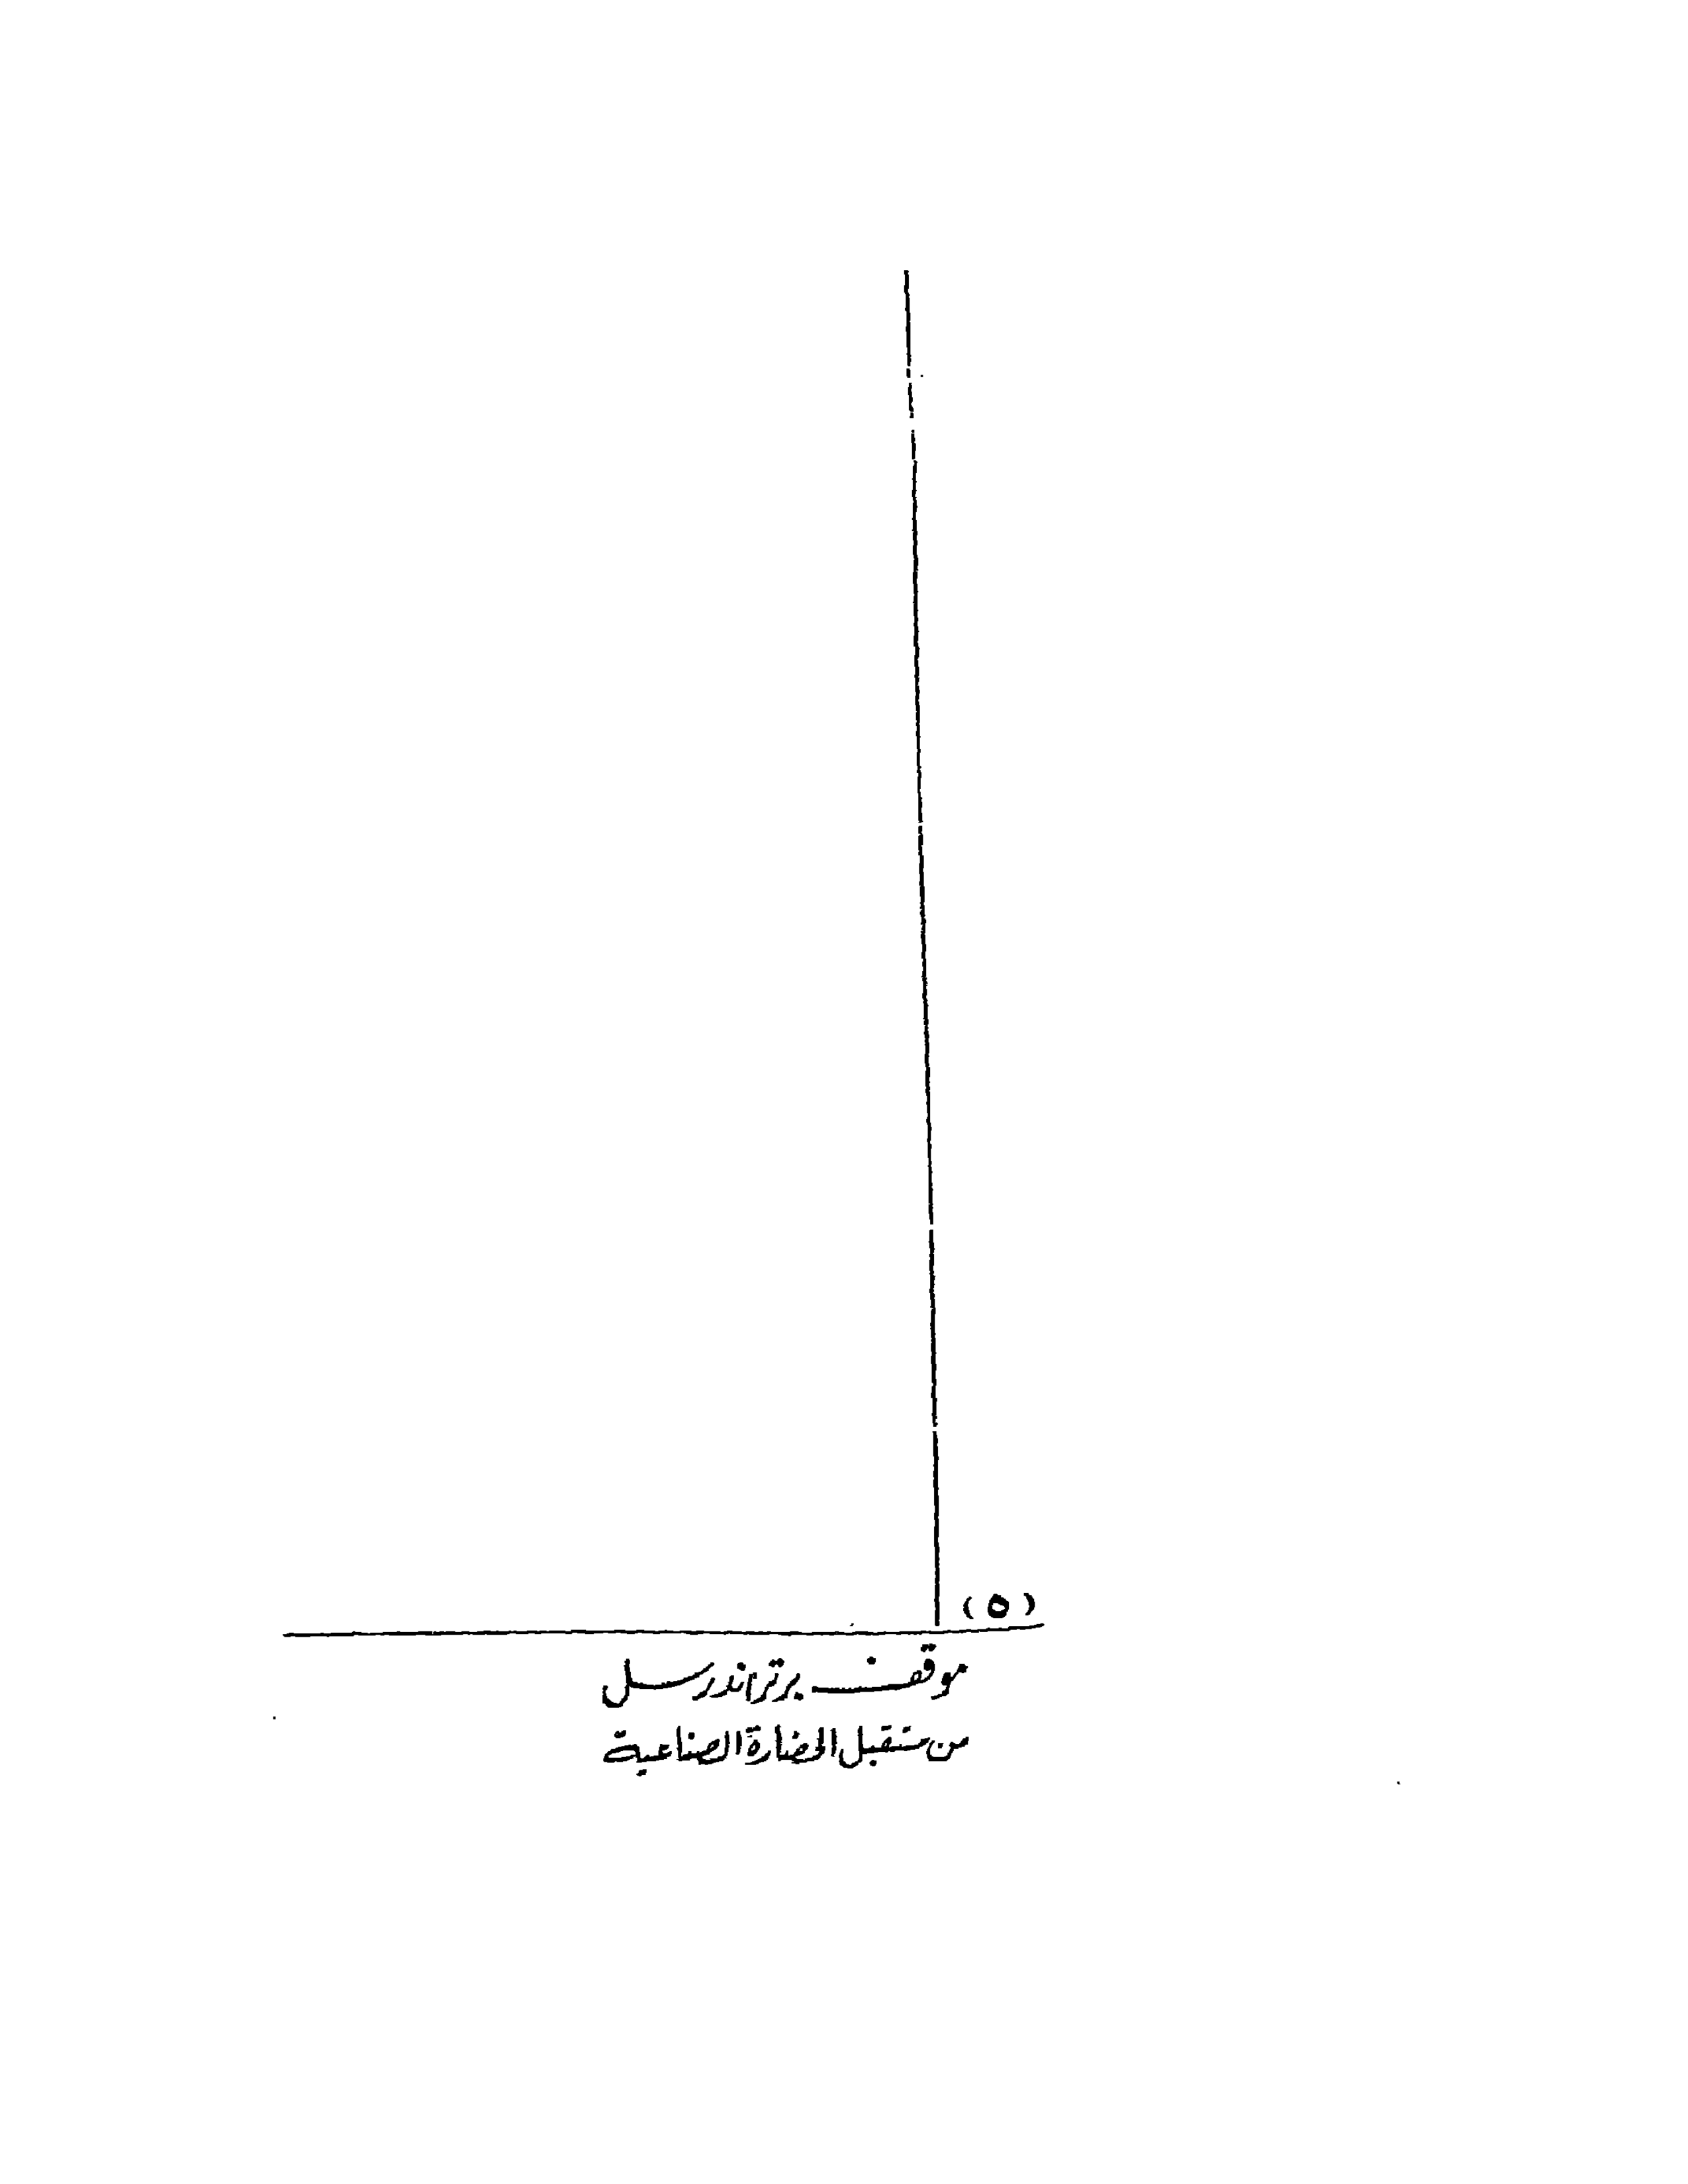 (٥)
موقف برتراند رسل
من مستقبل الحضارة الصناعية